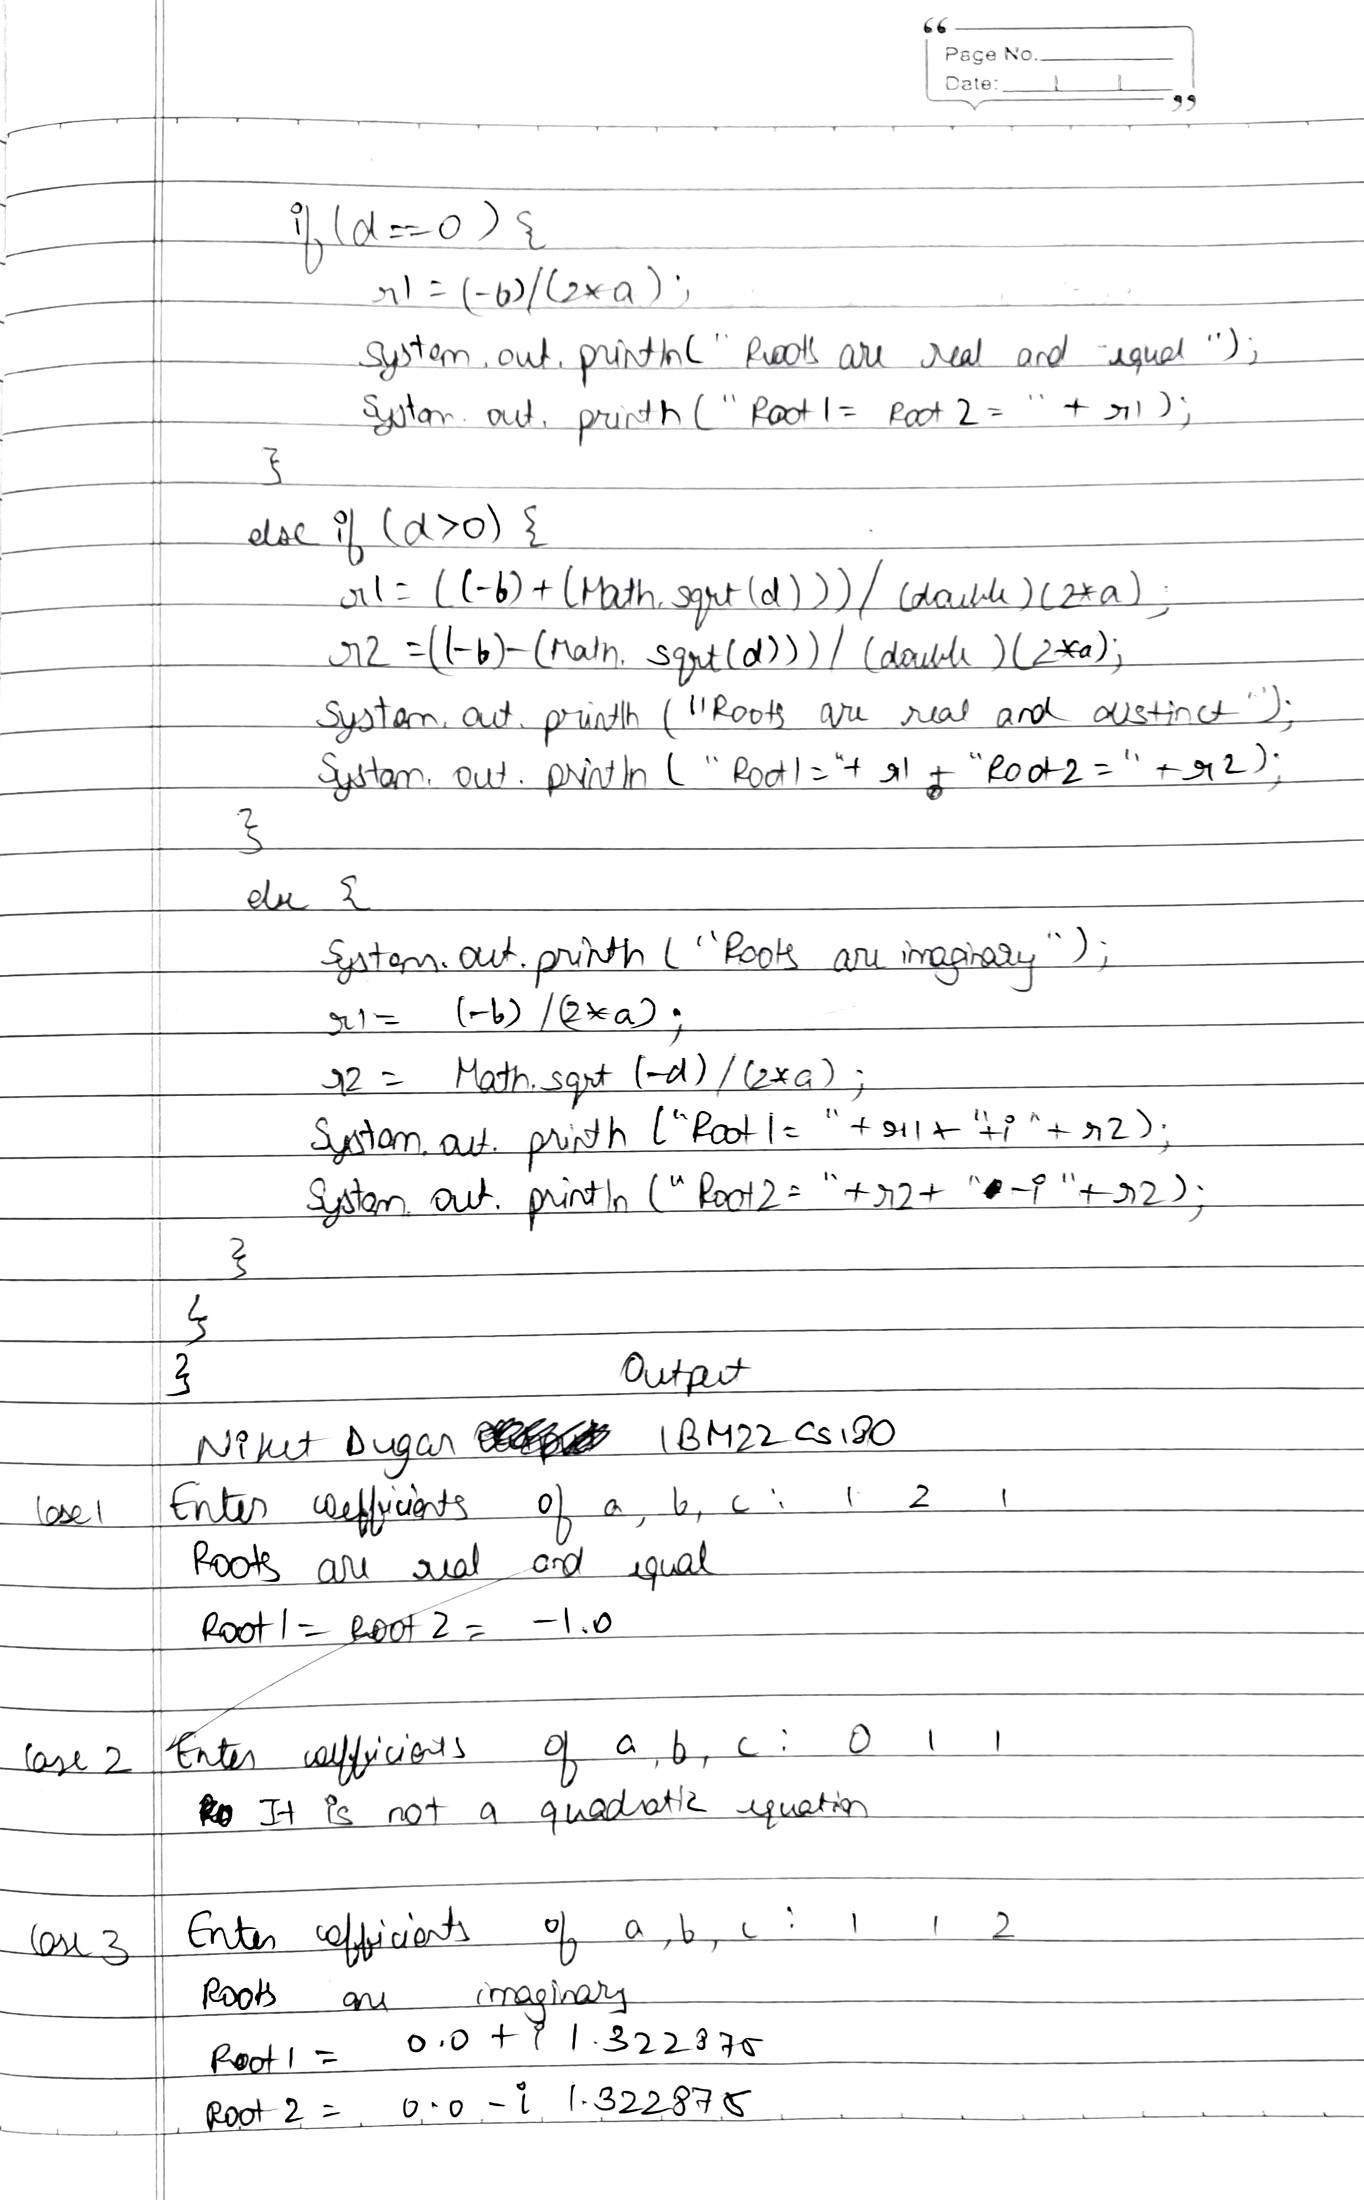 “
Page No.
Date:
”
if (d==0) {
r1 = (-b)/(2*a);
System.out.println(" Roots are real and equal ");
System.out.println(" Root 1 = Root 2 = " + r1);
}
else if (d>0) {
r1 = ((-b)+(Math.sqrt(d)))/(double)(2*a);
r2 = ((-b)-(Math.sqrt(d)))/(double)(2*a);
System.out.println("Roots are real and distinct");
System.out.println("Root1="+ r1 + "Root2=" + r2);
}
else {
System.out.println("Roots are imaginary");
r1 = (-b)/(2*a);
r2 = Math.sqrt(-d)/(2*a);
System.out.println("Root 1 = " + r1 + "+i" + r2);
System.out.println("Root2 = " + r2 + "-i" + r2);
}
}
}
Output
Niket Dugar 1BM22CS180
Case 1 Enter coefficients of a, b, c : 1 2 1
Roots are real and equal
Root 1 = Root 2 = -1.0
Case 2 Enter coefficients of a, b, c : 0 1 1
It is not a quadratic equation
Case 3 Enter coefficients of a, b, c : 1 1 2
Roots are imaginary
Root 1 = 0.0 + i 1.322875
Root 2 = 0.0 - i 1.322875